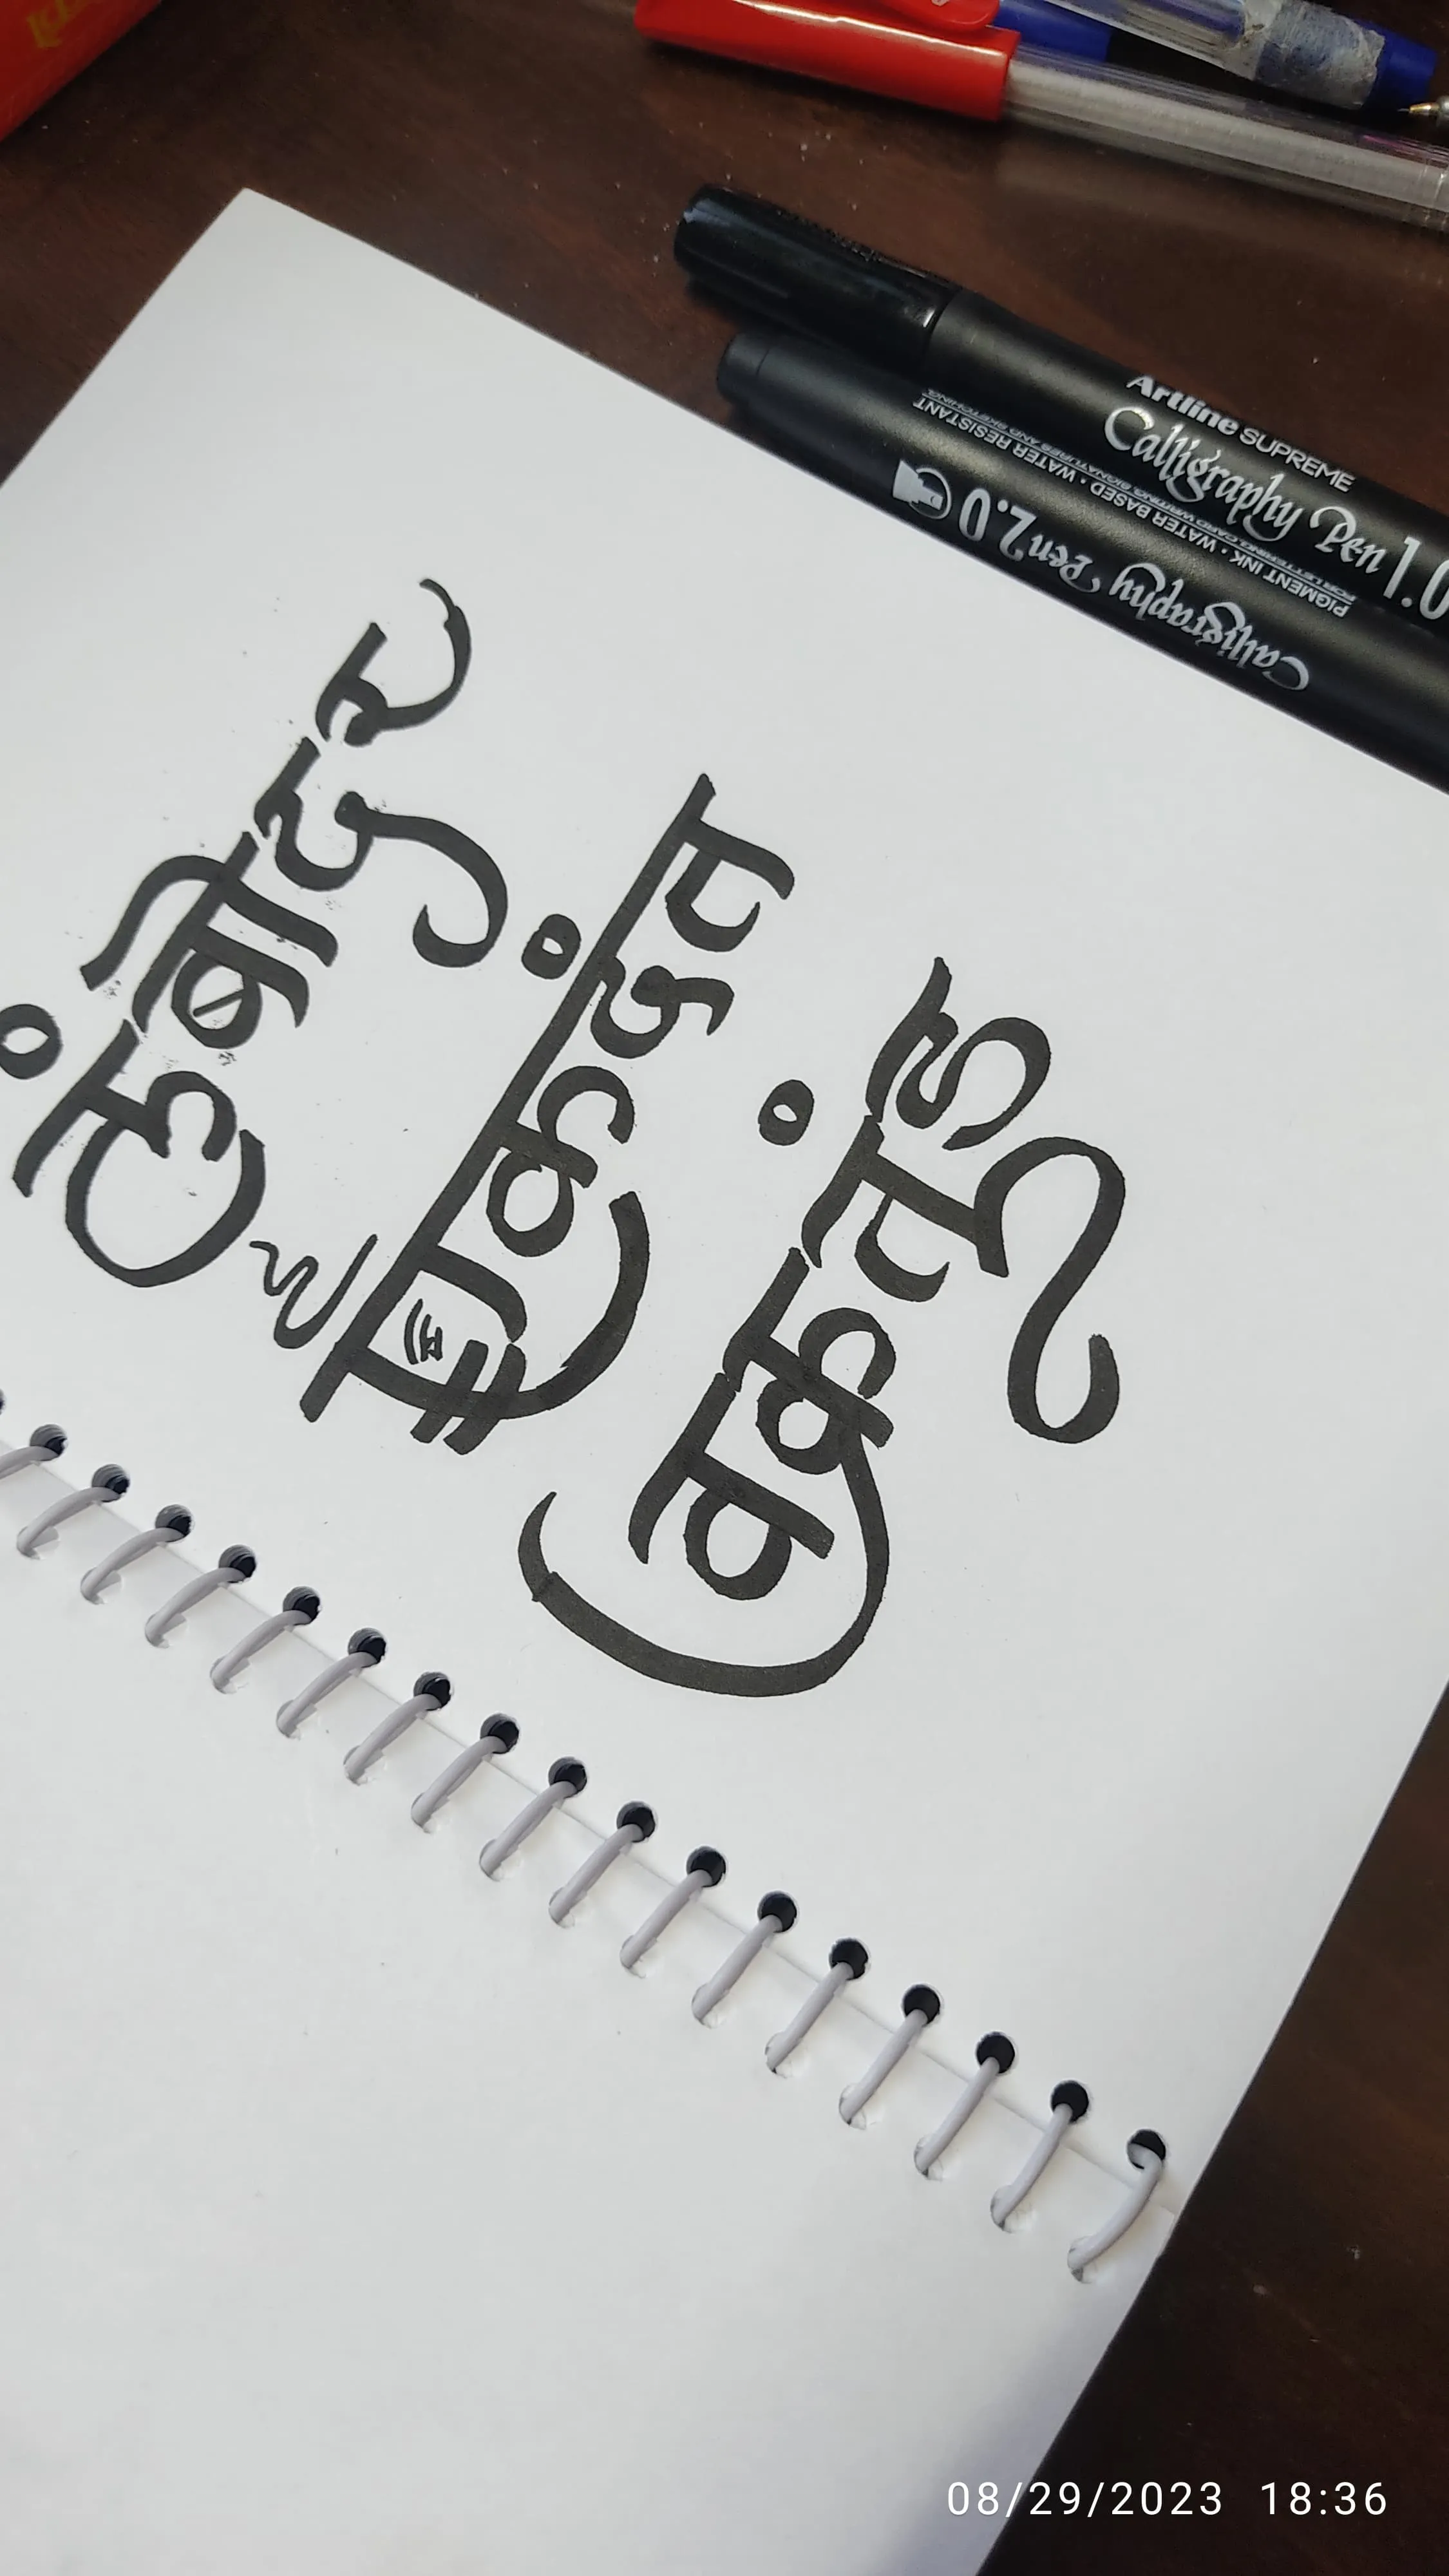 Artline SUPREME
Calligraphy Pen 1.0
Calligraphy Pen 2.0
PIGMENT INK • WATER BASED • WATER RESISTANT
FOR LETTERING CARD WRITING SIGNATURES AND SKETCHING
लंबोदर
एकदंत
वक्रतुंड
08/29/2023 18:36